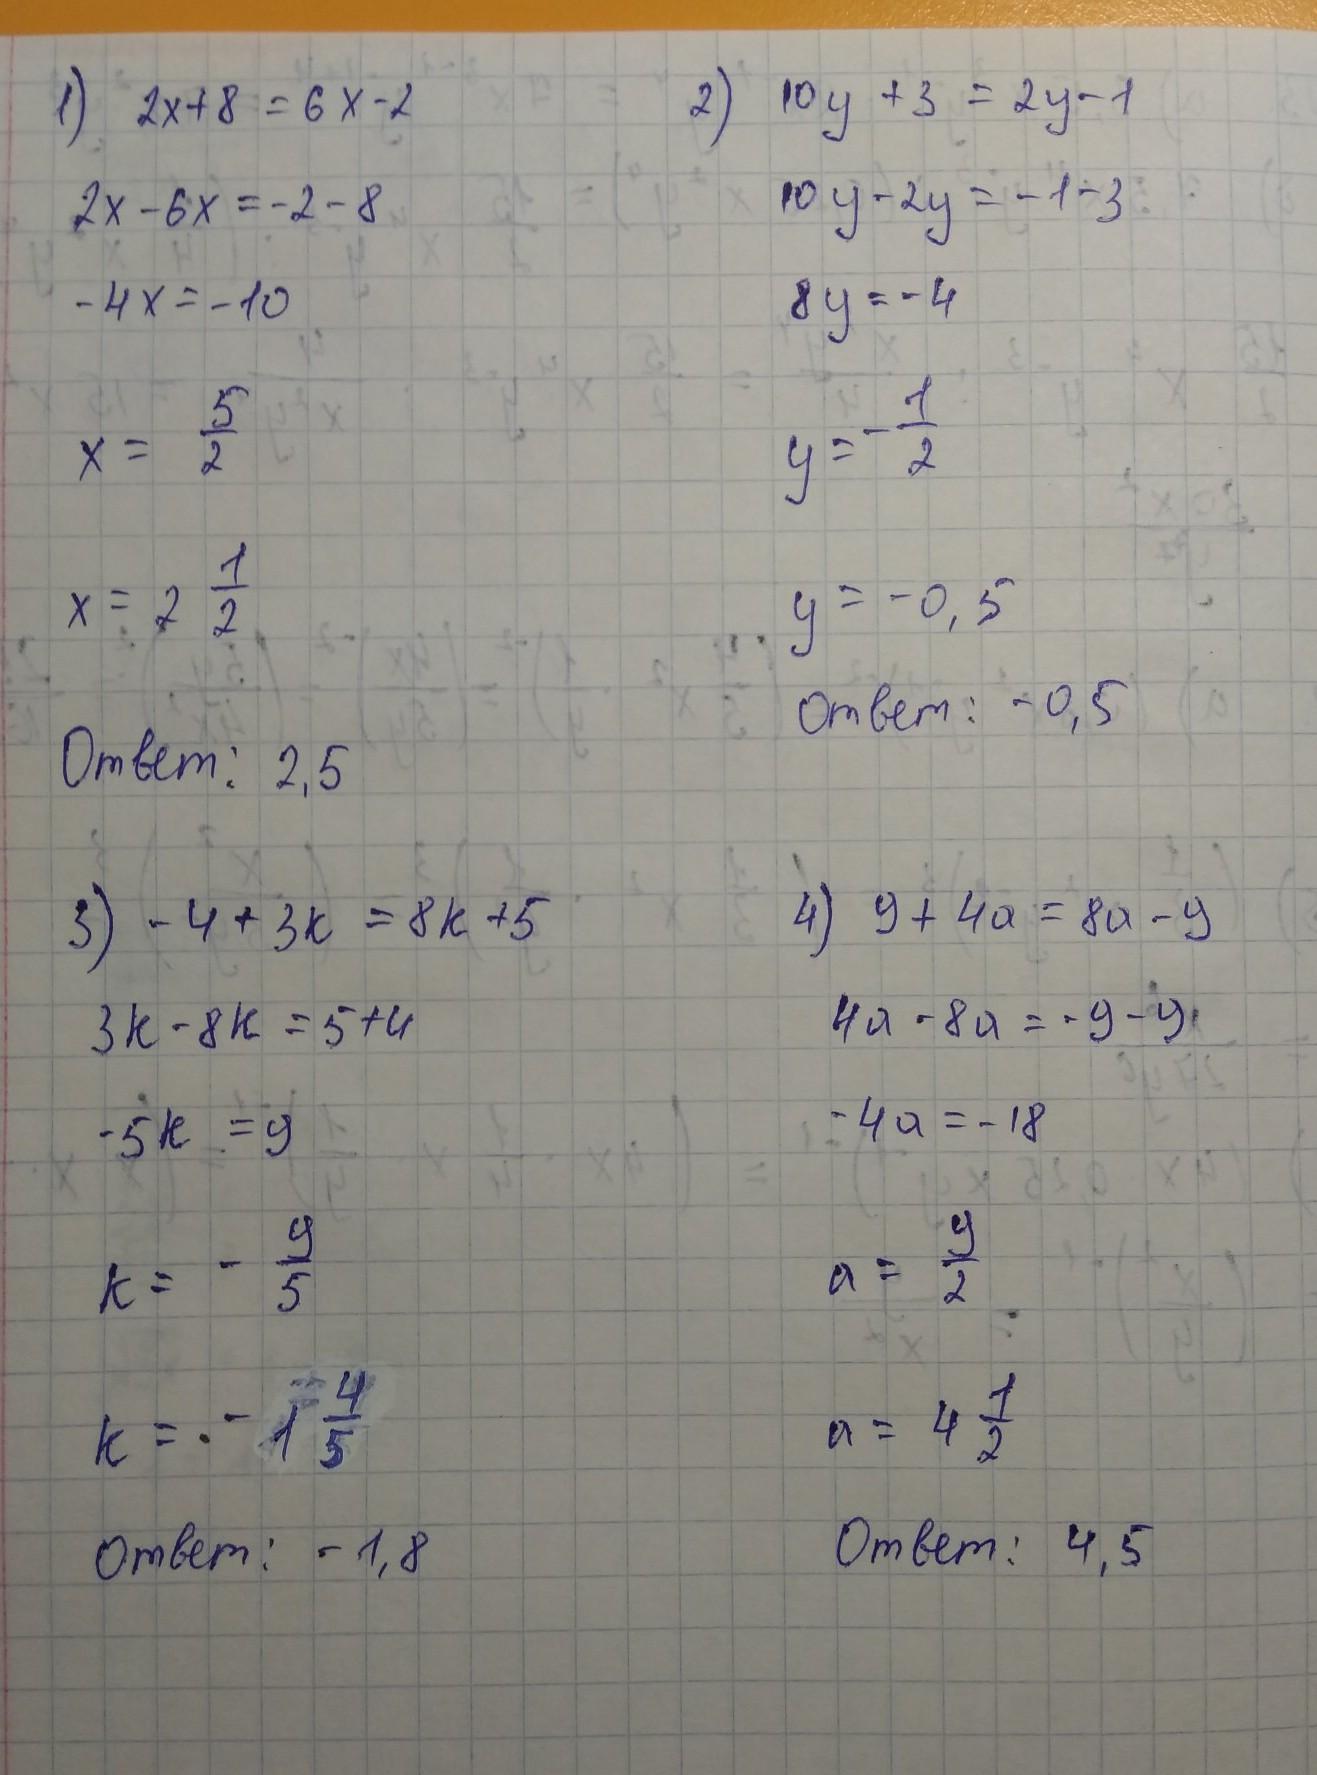 1) 2x+8=6x-2
2x-6x=-2-8
-4x=-10
x= 5/2
x= 2 1/2
Ответ: 2,5
2) 10y+3=2y-1
10y-2y=-1-3
8y=-4
y=-1/2
y=-0,5
Ответ: -0,5
3) -4+3k=8k+5
3k-8k=5+4
-5k=9
k= - 9/5
k= - 1 4/5
Ответ: -1,8
4) 9+4a=8a-9
4a-8a=-9-9
-4a=-18
a= 9/2
a= 4 1/2
Ответ: 4,5